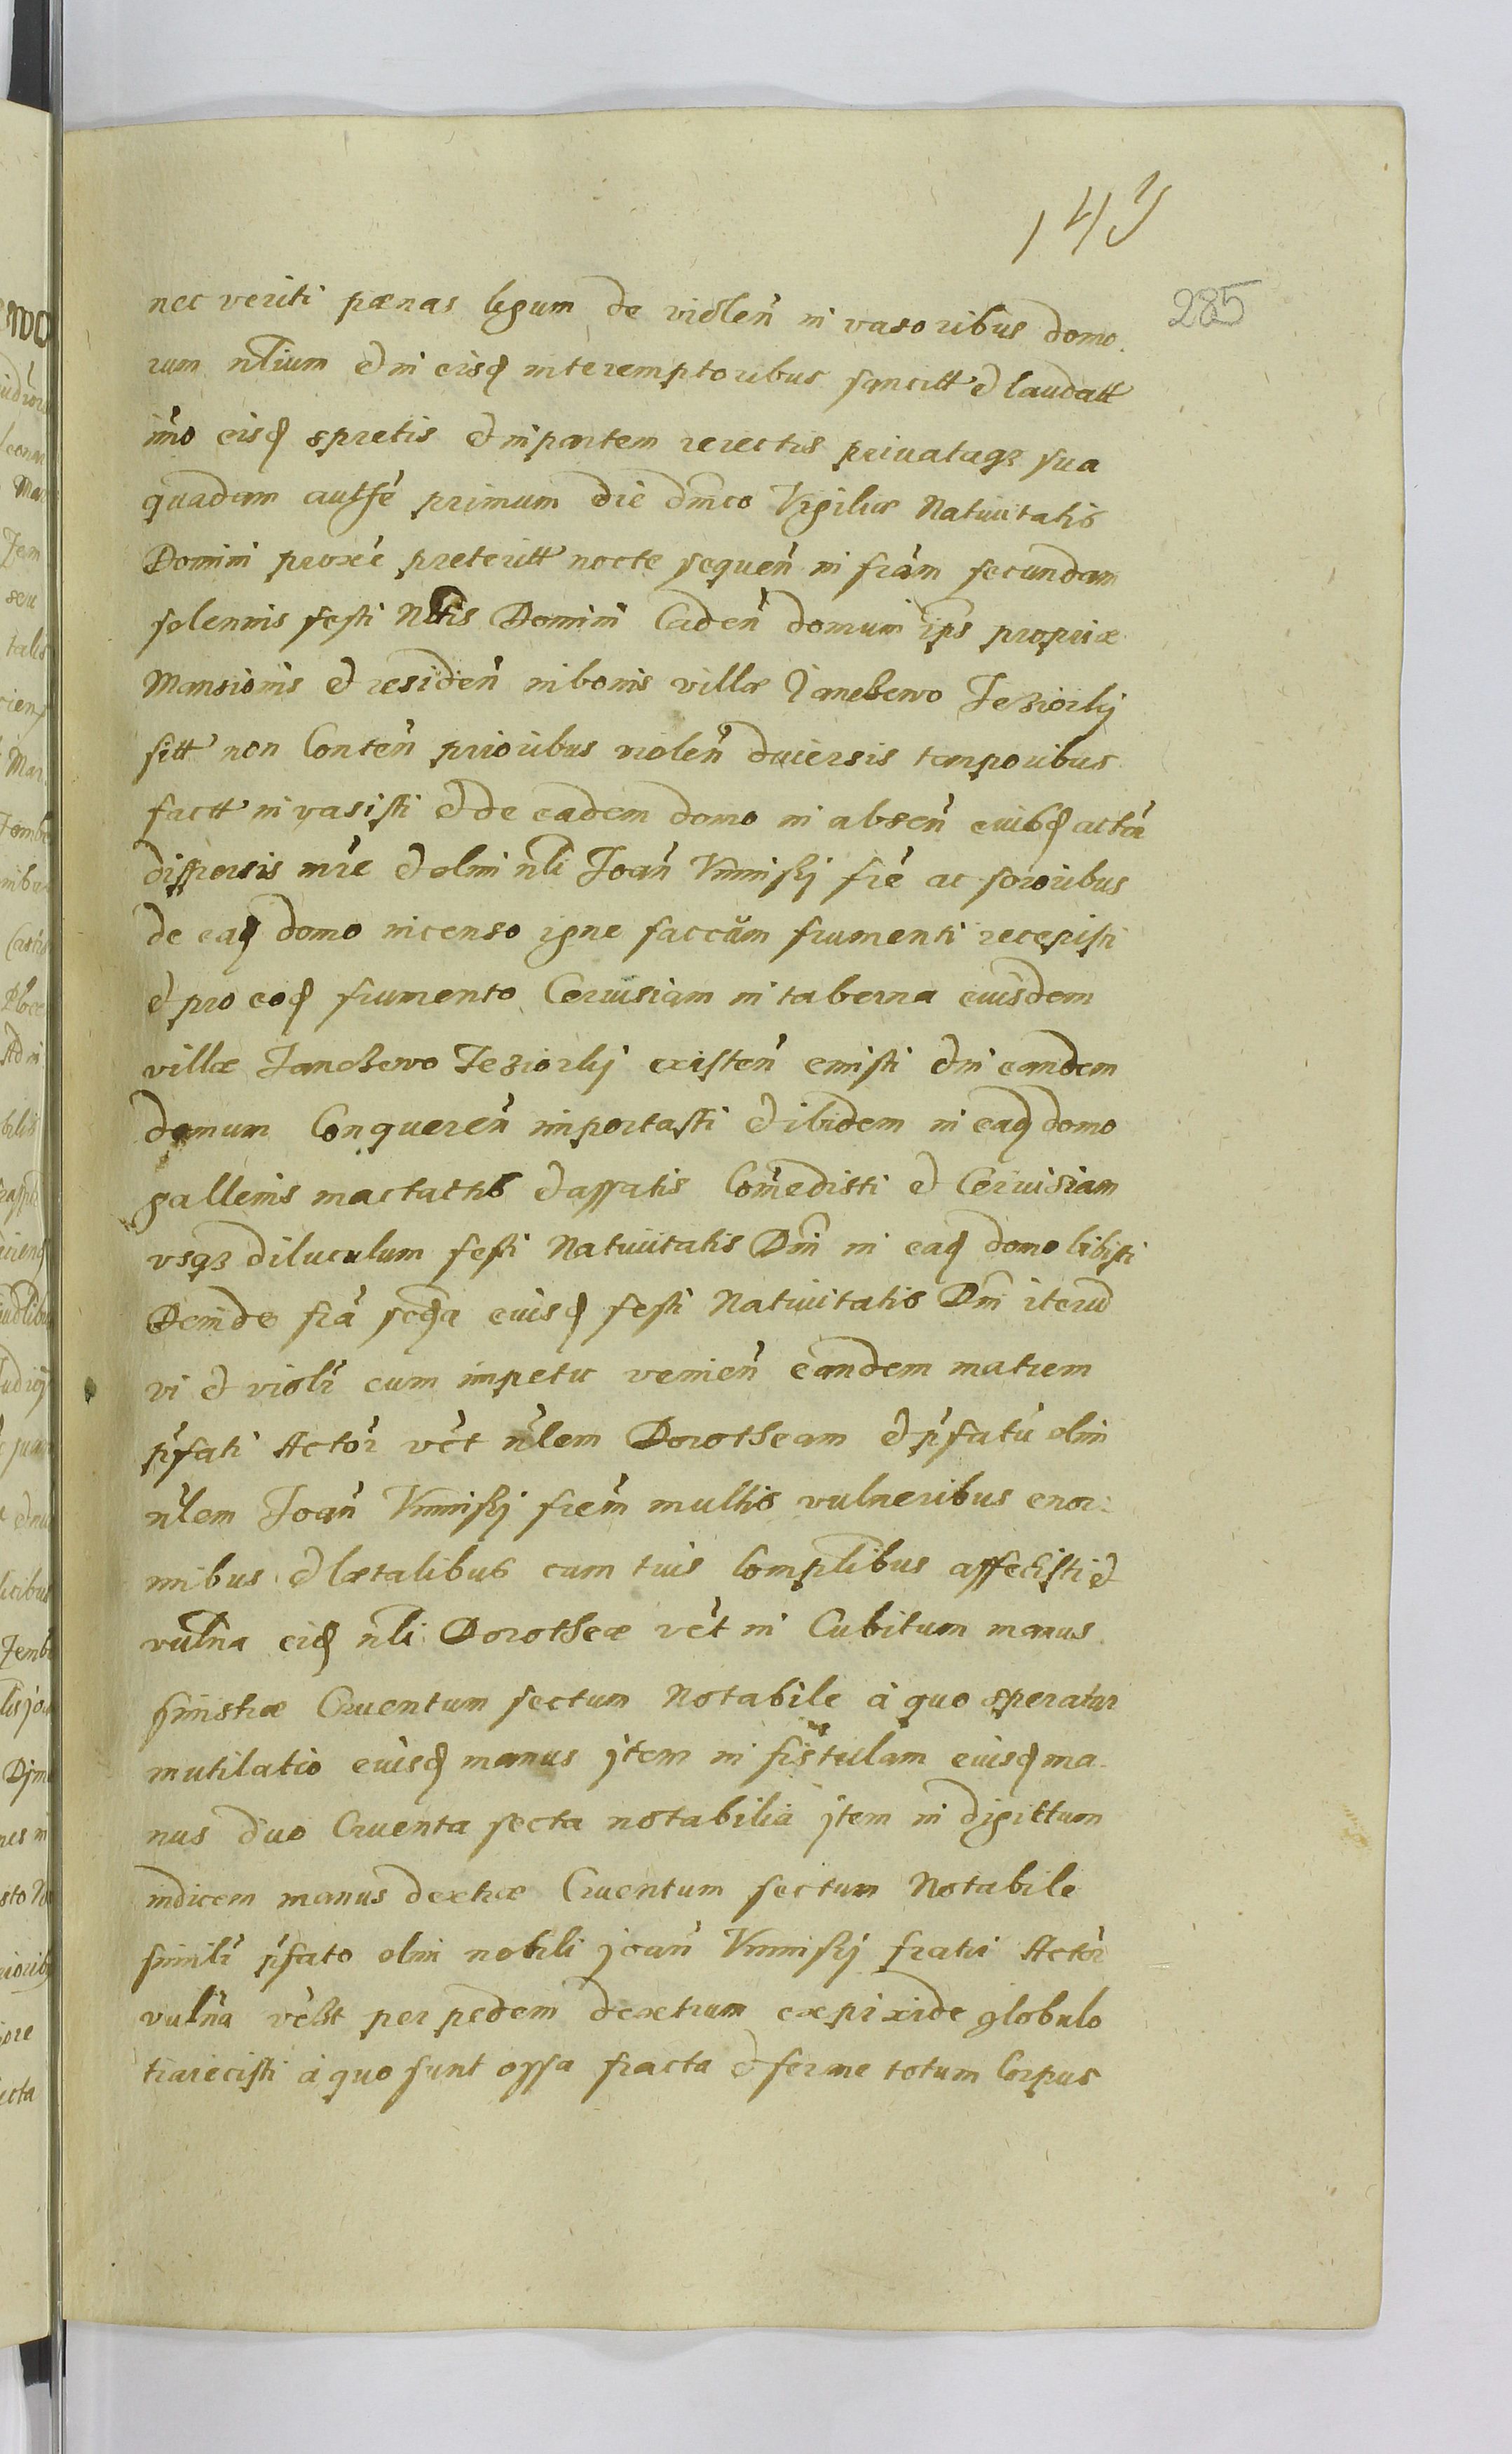 143
285
nec veriti pænas legum de violen̄ in vasoribus domo
rum nlium et in eisq interemptoribus sancitt et laudatt
imo eisq spretis et inpartem reiectis privataqз sua
quadam authē primum die dnico Vigiliæ Natiuitatis
Domini proxie preteritt nocte sequen̄ in fiam secundam
solennis festi Ntis Domini Caden̄ domum ips propriæ
Mansionis et residen̄ in bonis villæ Janchewo Jeziorky
sitt non Conten̄ prioribus violen̄ diuersis temporibus
factt in vasisti et de eadem domo in absen̄ eiusq actor
dispersis mre et olim nli Joan̄ Vminskj fre ac sororibus
de eaq domo incenso igne saccum frumenti recepisti
et pro eoq frumento Ceruisiam in taberna eiusdem
villæ Janchewo Jeziorky existen̄ emisti et in eandem
domum Conqueren̄ importasti et ibidem in eaq domo
gallinis mactatis et assatis Comedisti et Ceruisiam
vsqз diluculum festi Natiuitatis Dni in eaq domo bibisti
Deinde fia scda eiusq festi Natiuitatis Dni iterū
vi et violr cum impetu venien̄ eandem matrem
pfati Actor vēt nlem Dorotheam et pfatū olim
nlem Joan̄ Vminskj frem multis vulneribus enor:
mibus et lætalibus cum tuis Complibus affecisti et
vulna eiq nli Dorotheæ vēt in Cubitum manus
sinistræ Cruentum sectum Notabile à quo speratur
mutilatio eiusq manus jtem in fistulam eiusq ma
nus duo Cruenta secta notabilia jtem in digittum
indicem manus dextræ Cruentum sectum Notabile
similr pfato olim nobili joan̄ Vminskj fratri Actor
vulna vēlt per pedem dextrum ex pixide globulo
traiecisti à quo sunt ossa fracta et ferme totum Corpus